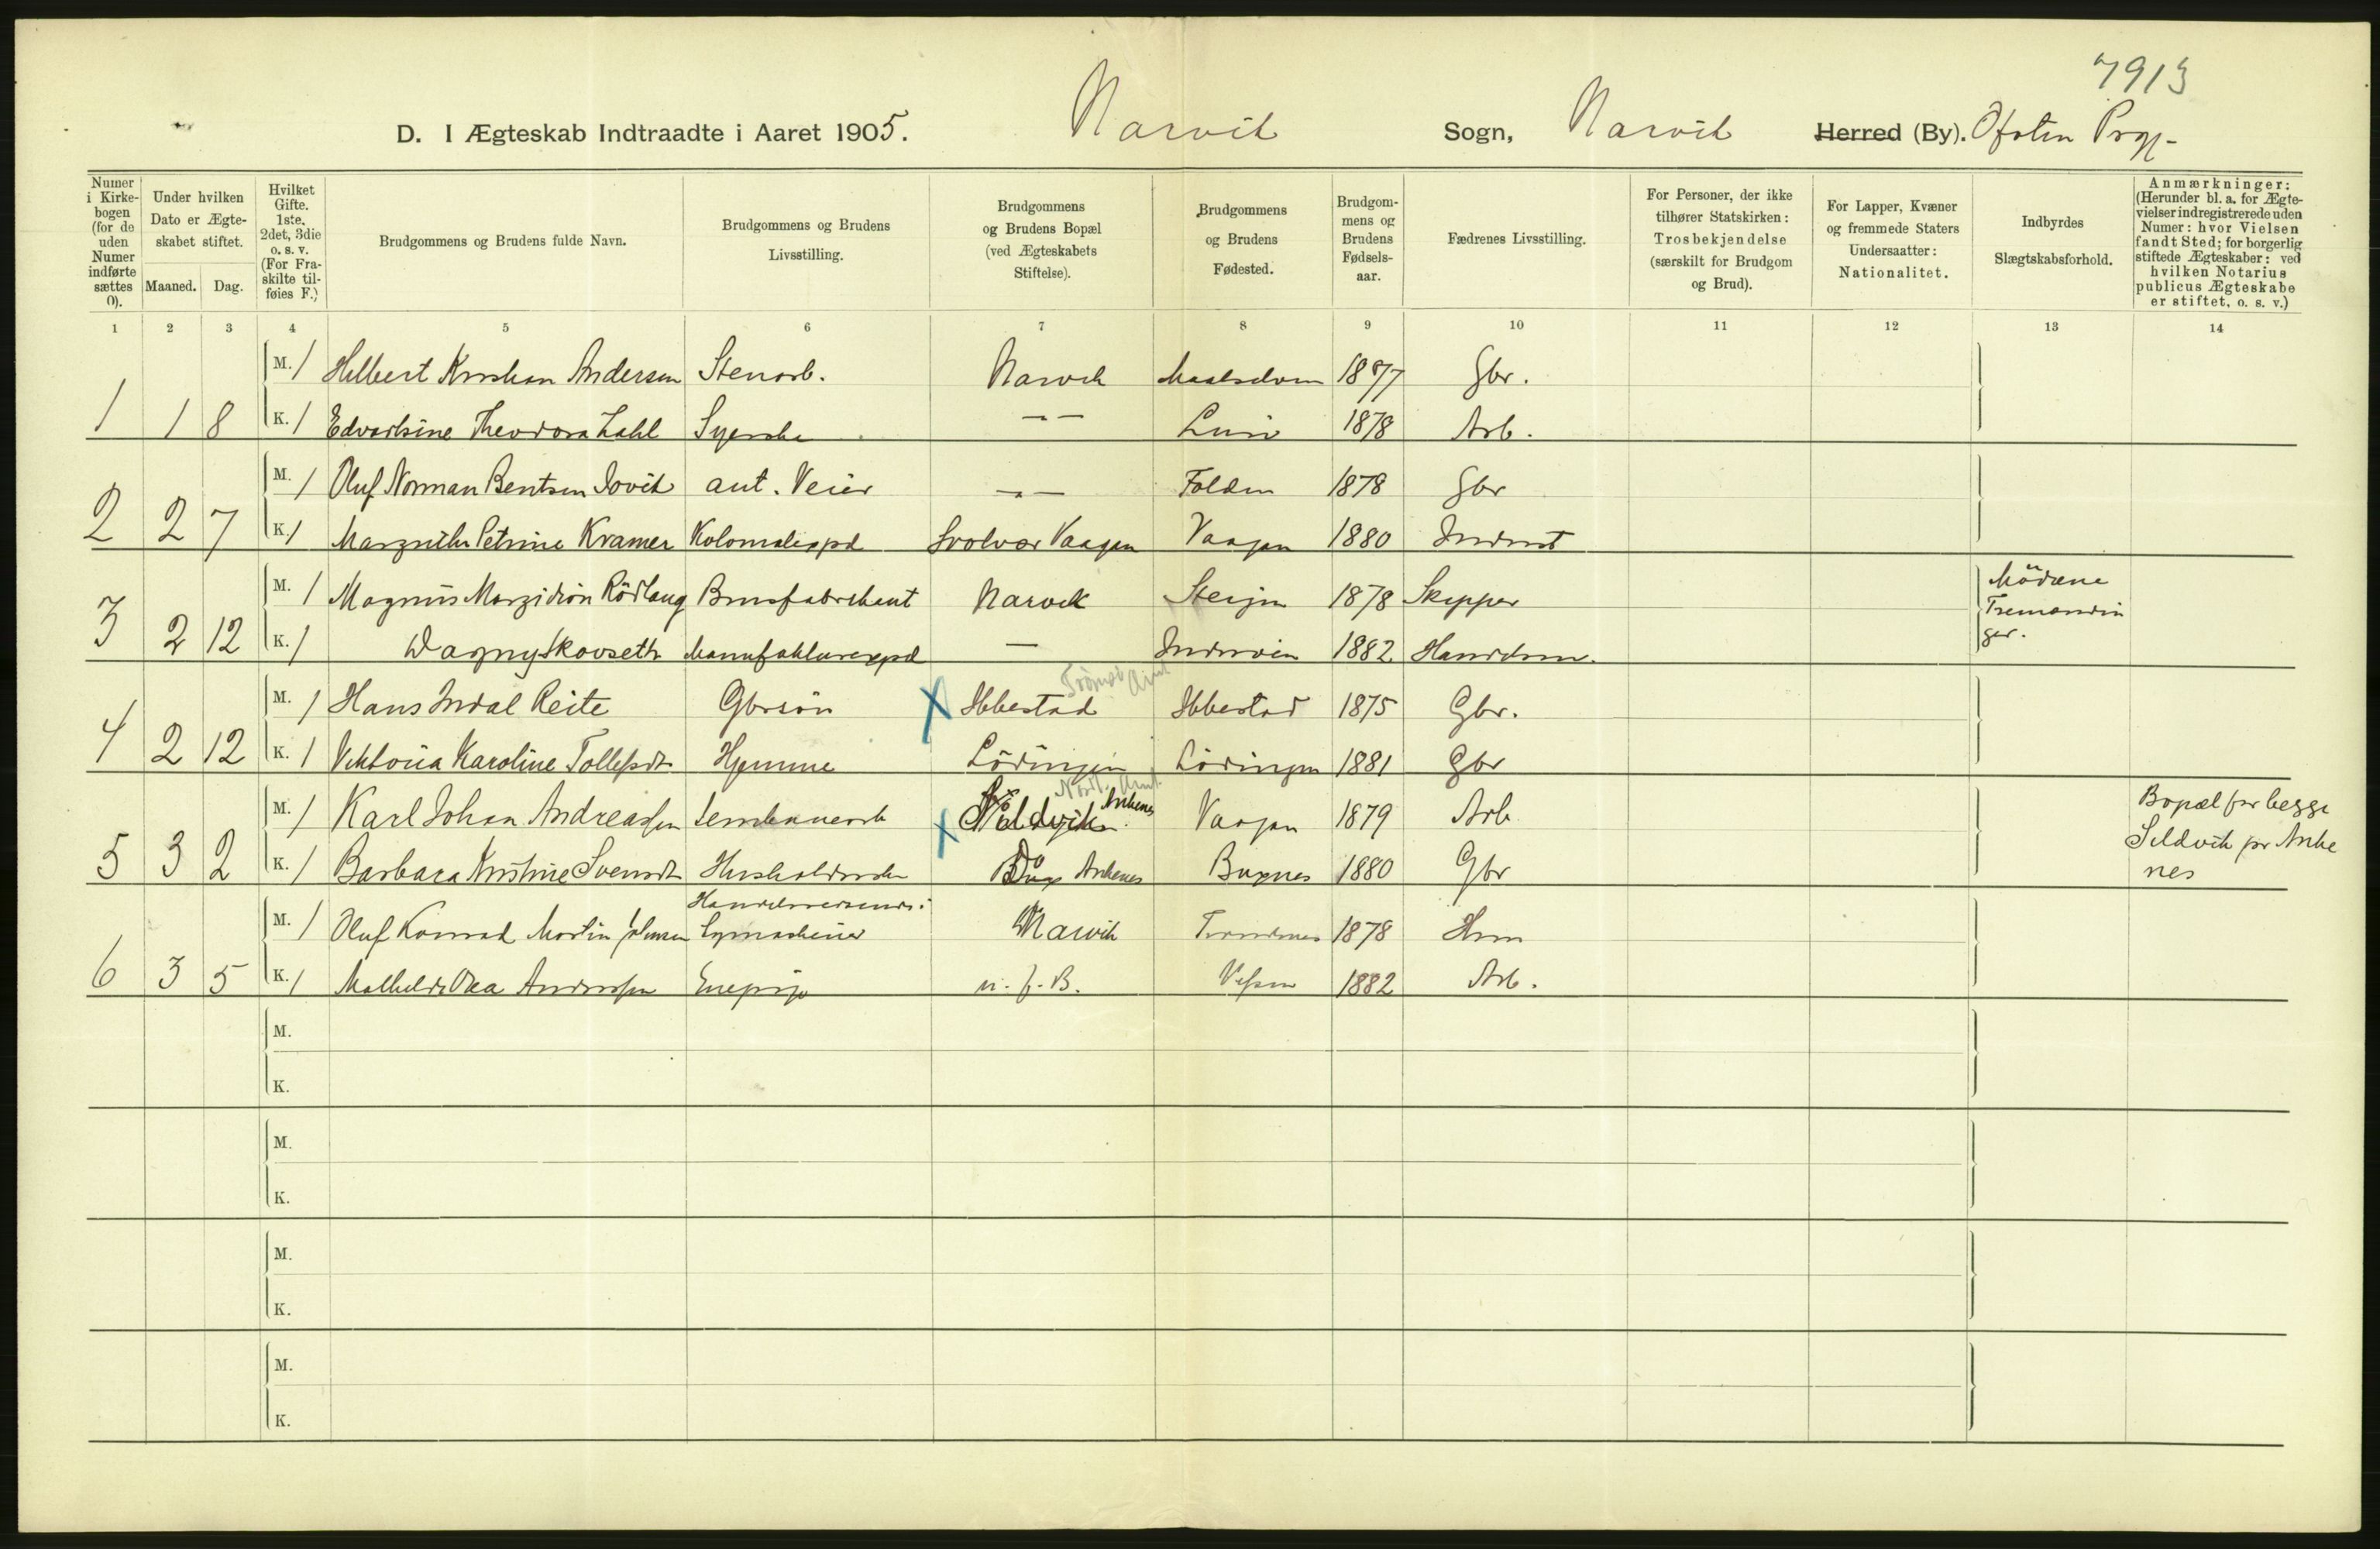 7913
D. I Ægteskab Indtraadte i Aaret 1905. Narvik Sogn, Narvik Herred (By). Ofoten Prgj-
Numer i Kirkebogen (for de uden Numer indførte sættes 0).
Under hvilken Dato er Ægteskabet stiftet.
Maaned. Dag.
Hvilket Gifte. 1ste, 2det, 3die o. s. v. (For Fraskilte tilføies F.)
Brudgommens og Brudens fulde Navn.
Brudgommens og Brudens Livsstilling.
Brudgommens og Brudens Bopæl (ved Ægteskabets Stiftelse).
Brudgommens og Brudens Fødested.
Brudgommens og Brudens Fødselsaar.
Fædrenes Livsstilling.
For Personer, der ikke tilhører Statskirken: Trosbekjendelse (særskilt for Brudgom og Brud).
For Lapper, Kvæner og fremmede Staters Undersaatter: Nationalitet.
Indbyrdes Slægtskabsforhold.
Anmærkninger: (Herunder bl. a. for Ægtevielser indregistrerede uden Numer: hvor Vielsen fandt Sted; for borgerlig stiftede Ægteskaber: ved hvilken Notarius publicus Ægteskabe er stiftet, o. s. v.)
1 2 3 4 5 6 7 8 9 10 11 12 13 14
M. 1 Hilbert Kristian Andersen Stenarb. Narvik Maalselven 1877 Gbr.
1 1 8 K. 1 Edvardsine Theodora Zahl Syerske -"- 1878 Arb.
M. 1 Oluf Norman Bentsen Jovik ant. Veier -"- Folden 1878 Gbr
2 2 7 K. 1 Margrethe Petrine Kramer Kolonialexpd Svolvær Vaagan Vaagan 1880
M. 1 Magnus Rödtang Brusfabrikant Narvik Steigen 1878 Skipper
Mödrene Tremenninger.
3 2 12 K. 1 Dagny Skovseth Manufakturexpd - Inderøien 1882 Handelsm.
Tromsø Amt
M. 1 Hans Indal Reite Gbrsön Ibbestad Ibbestad 1875 Gbr.
4 2 12 K. 1 Viktoria Karoline Tollefsdt Hjemme Lödingen Lödingen 1881 Gbr
Nordl. Amt.
M. 1 Karl Johan Andreassen Jernbanearb Sildvik Ankenes Vaagan 1879 Arb
Bopæl for begge Sildvik pr Ankenes
5 3 2 K. 1 Barbara Kristine Svensdt Husholderske Do Ankenes Buxnes 1880 Gbr
Handelsreisende i
M. 1 Oluf Konrad Martin Johnsen Symaskiner Narvik Trondenes 1878
6 3 5 K. 1 Mathilde Andreassen n. f. B. Vefsen 1882 Arb.
M.
K.
M.
K.
M.
K.
M.
K.